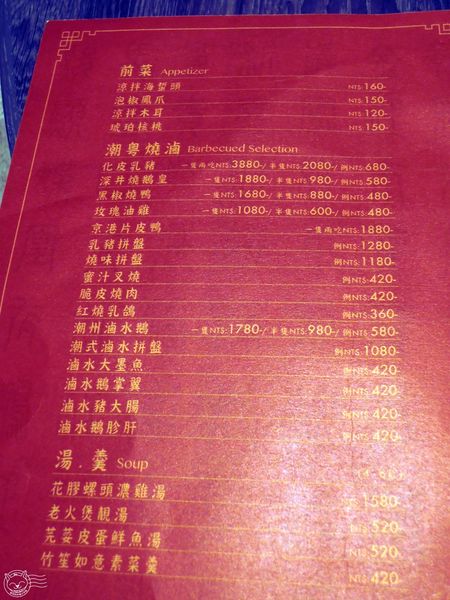 前菜 Appetizer
涼拌海蜇頭 NT$:160-
泡椒鳳爪 NT$:150-
涼拌木耳 NT$:120-
琥珀核桃 NT$:150-
潮粵燒滷 Barbecued Selection
化皮乳豬 一隻兩吃NT$:3880-/半隻NT$:2080-/例NT$:680-
深井燒鵝皇 一隻NT$:1880-/半隻NT$:980-/例NT$:580-
黑椒燒鴨 一隻NT$:1680-/半隻NT$:880-/例NT$:480-
玫瑰油雞 一隻NT$:1080-/半隻NT$:600-/例NT$:480-
京港片皮鴨 一隻兩吃NT$:1880-
乳豬拼盤 例NT$:1280-
燒味拼盤 例NT$:1180-
蜜汁叉燒 例NT$:420-
脆皮燒肉 例NT$:420-
紅燒乳鴿 例NT$:360-
潮州滷水鵝 一隻NT$:1780-/半隻NT$:980-/例NT$:580-
潮式滷水拼盤 例NT$:1080-
滷水大墨魚 例NT$:420-
滷水鵝掌翼 例NT$:420-
滷水豬大腸 例NT$:420-
滷水鵝胗肝 例NT$:420-
湯.羹 Soup
花膠螺頭濃雞湯 NT$:1580-
老火煲靚湯 NT$:520-
芫荽皮蛋鮮魚湯 NT$:520-
竹笙如意素菜羹 NT$:420-